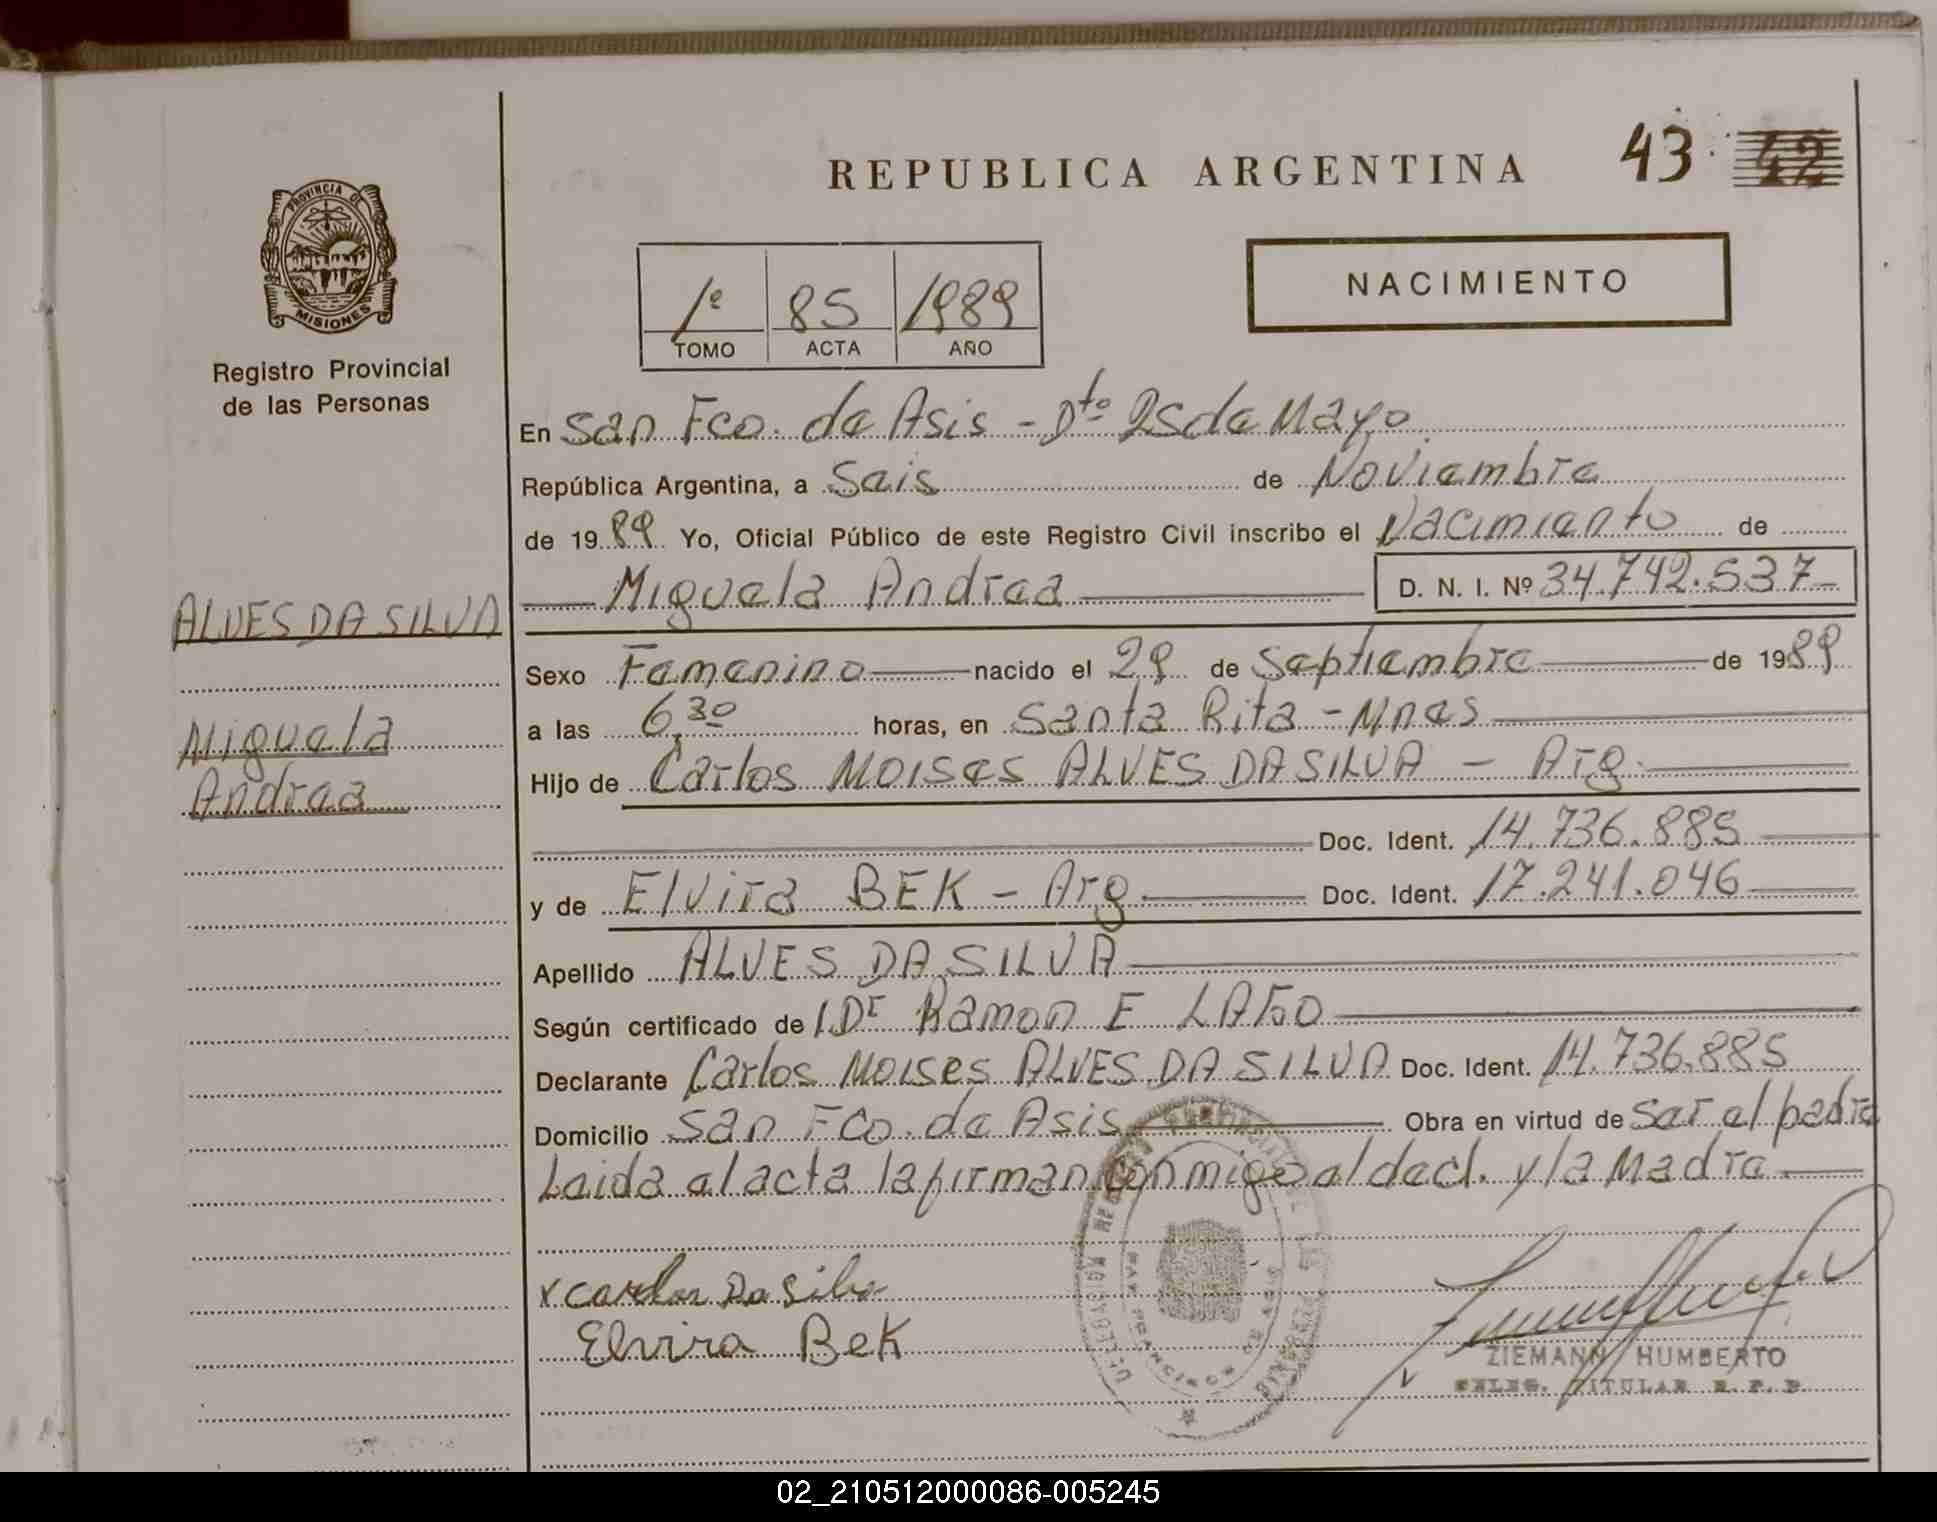 REPUBLICA ARGENTINA
43 42
PROVINCIA DE
MISIONES
Registro Provincial
de las Personas
NACIMIENTO
1º 85 1989
TOMO ACTA AÑO
En San Fco. de Asis - Dto 25 de Mayo
República Argentina, a Seis de Noviembre
de 1989 Yo, Oficial Público de este Registro Civil inscribo el Nacimiento de
Miguela Andrea D. N. I. Nº 34.742.537
ALVES DA SILVA
Miguela
Andrea
Sexo Femenino nacido el 29 de Septiembre de 1989
a las 6,30 horas, en Santa Rita - Mnes
Hijo de Carlos Moises ALVES DA SILVA - Arg.
Doc. Ident. 14.736.885
y de Elvira BEK - Arg Doc. Ident. 17.241.046
Apellido ALVES DA SILVA
Según certificado de l Dr Ramon E
Declarante Carlos Moises ALVES DA SILVA Doc. Ident. 14.736.885
Domicilio San Fco. de Asis Obra en virtud de ser el padre
Leida el acta la firman conmigo el decl. y la Madre
x Carlos Da Silva
Elvira Bek
SAN FRANCISCO DE ASIS
MISIONES
ZIEMANN HUMBERTO
DELEG. TITULAR R. P. P.
02_210512000086-005245